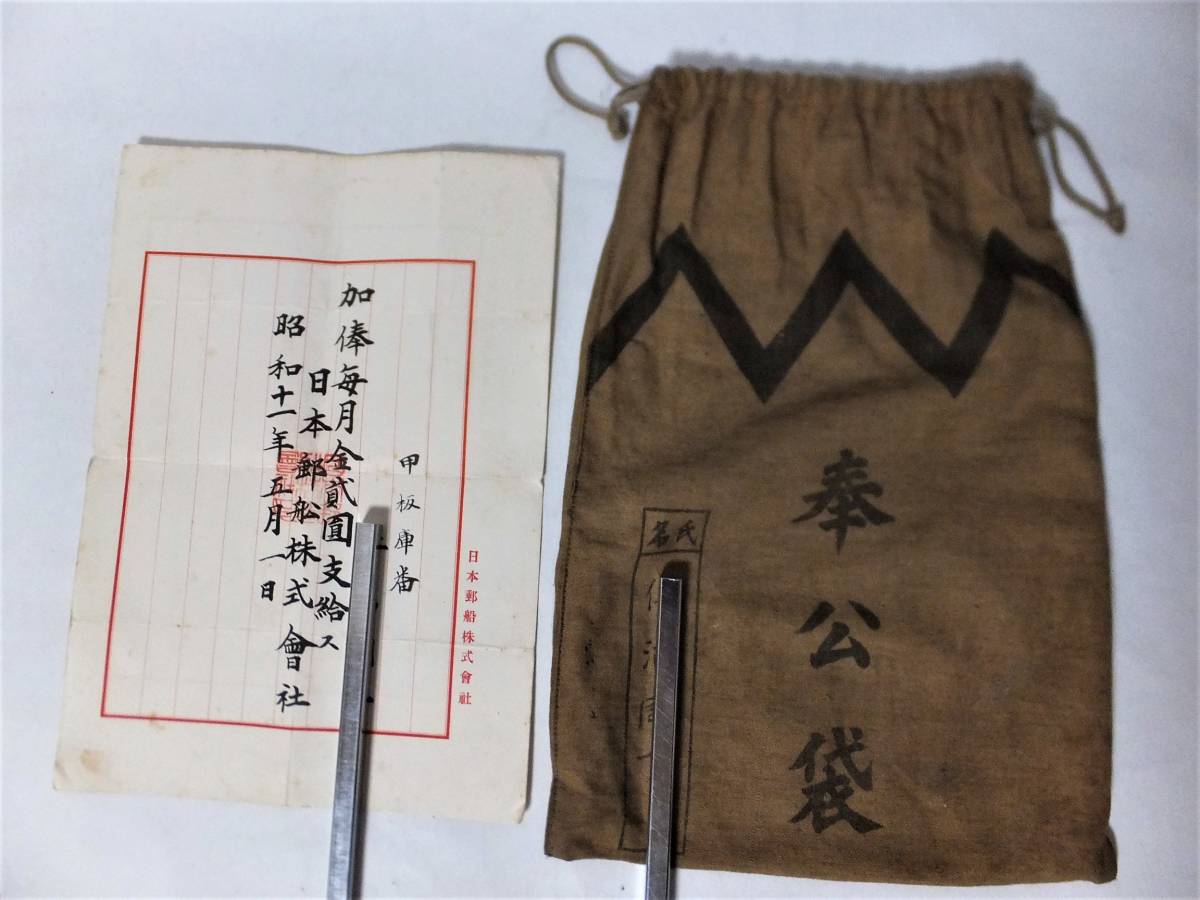 甲板庫番
加俸每月金貳圓支給ス
日本郵船株式會社
昭和十一年五月一日
日本郵船株式會社
奉公袋
氏名